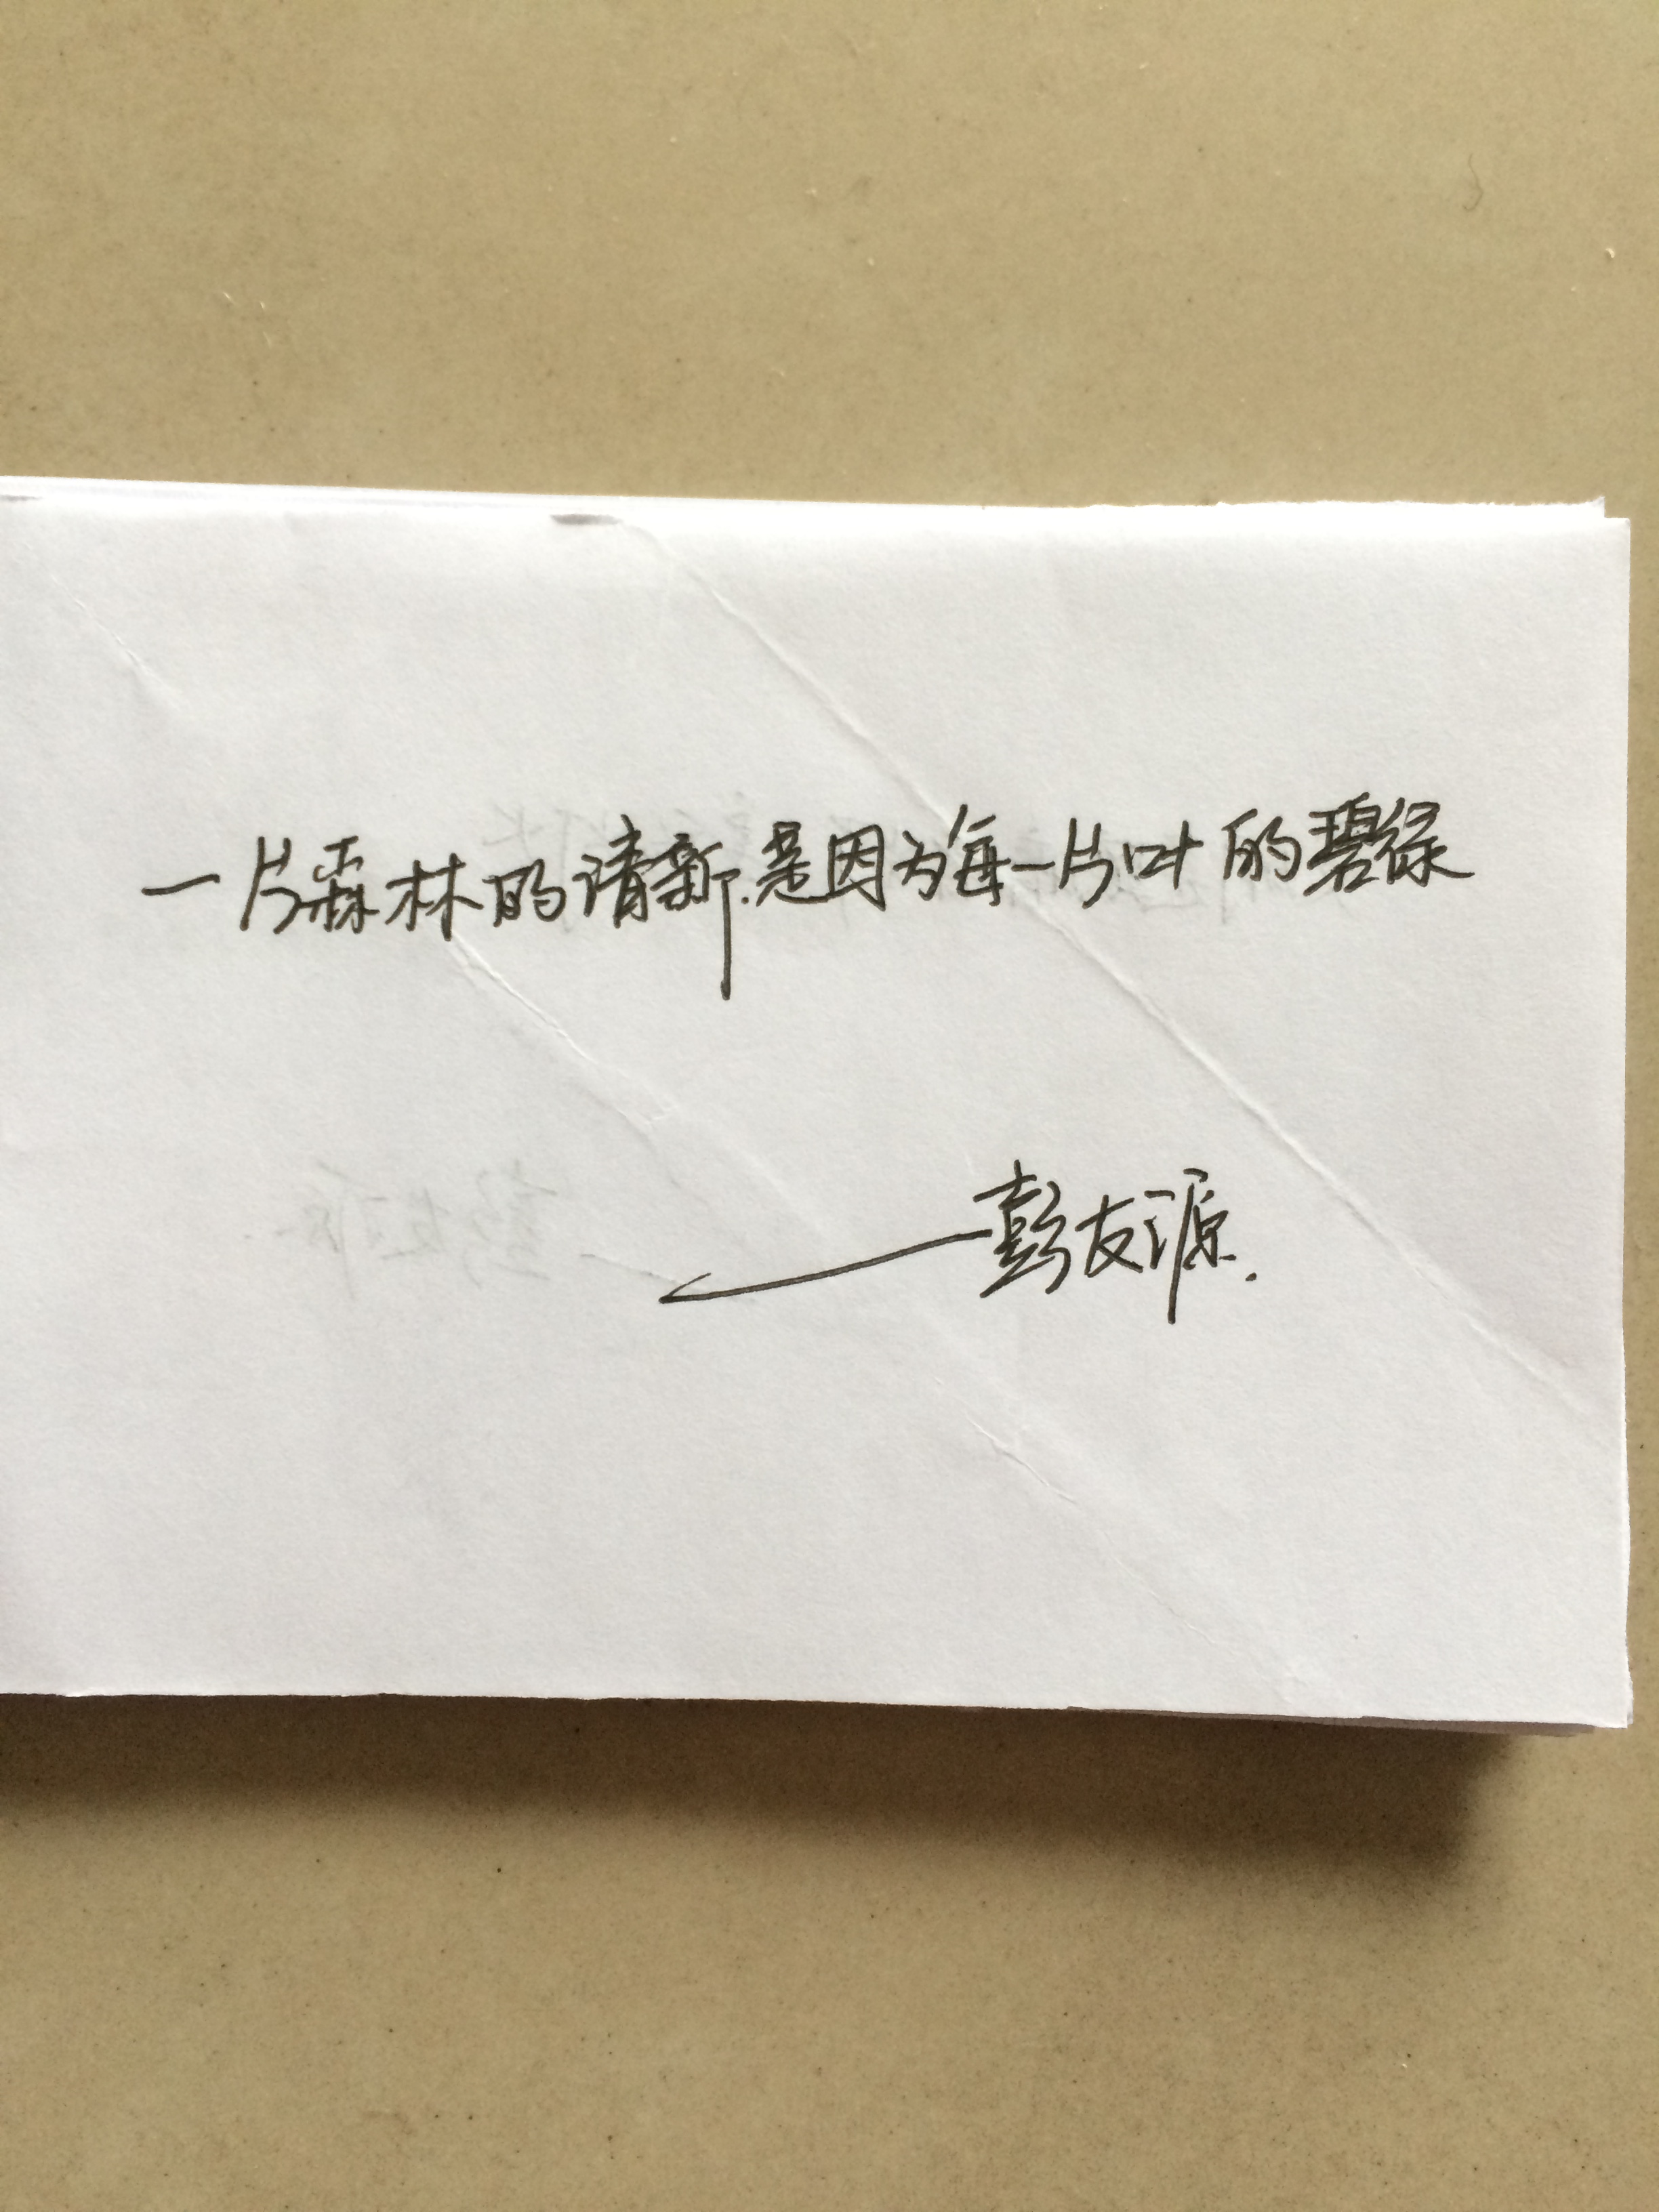 一片森林的清新.是因为每一片叶的碧绿
——彭友源.